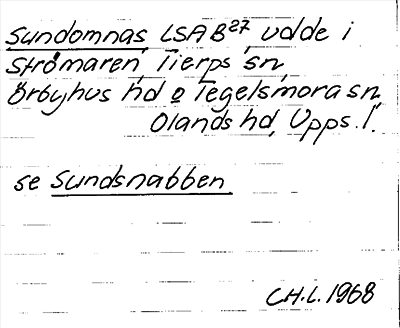 Sundomnäs, LSA B27 udde i
Strömaren, Tierps sn,
Örbyhus hd o Tegelsmora sn,
Olands hd, Upps. l.
se Sundsnabben
CH.L. 1968